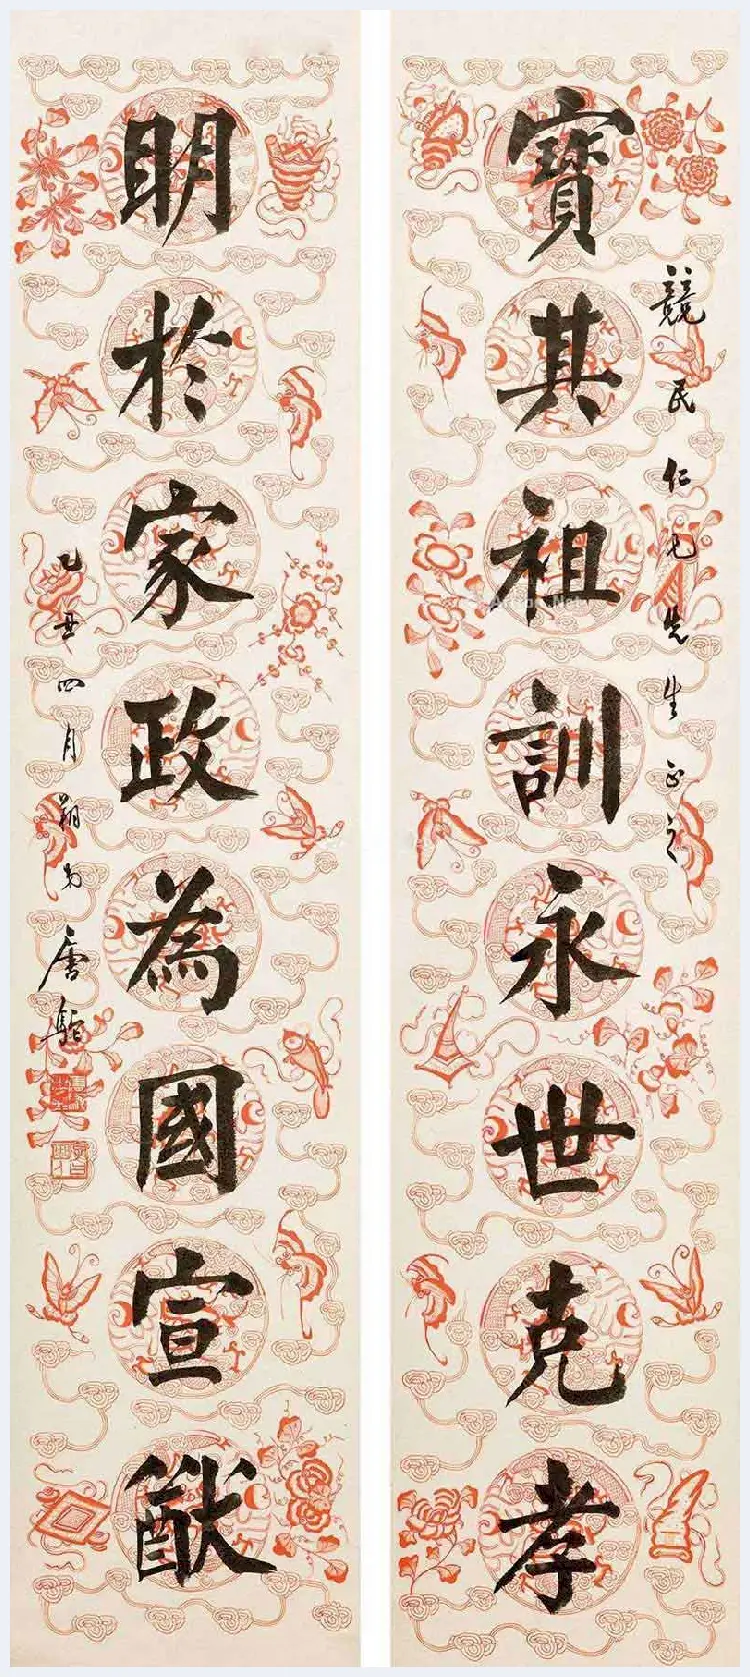 寶其祖訓永世克孝
競民仁兄先生正之
明於家政為國宣猷
乙丑四月朔為
唐駝